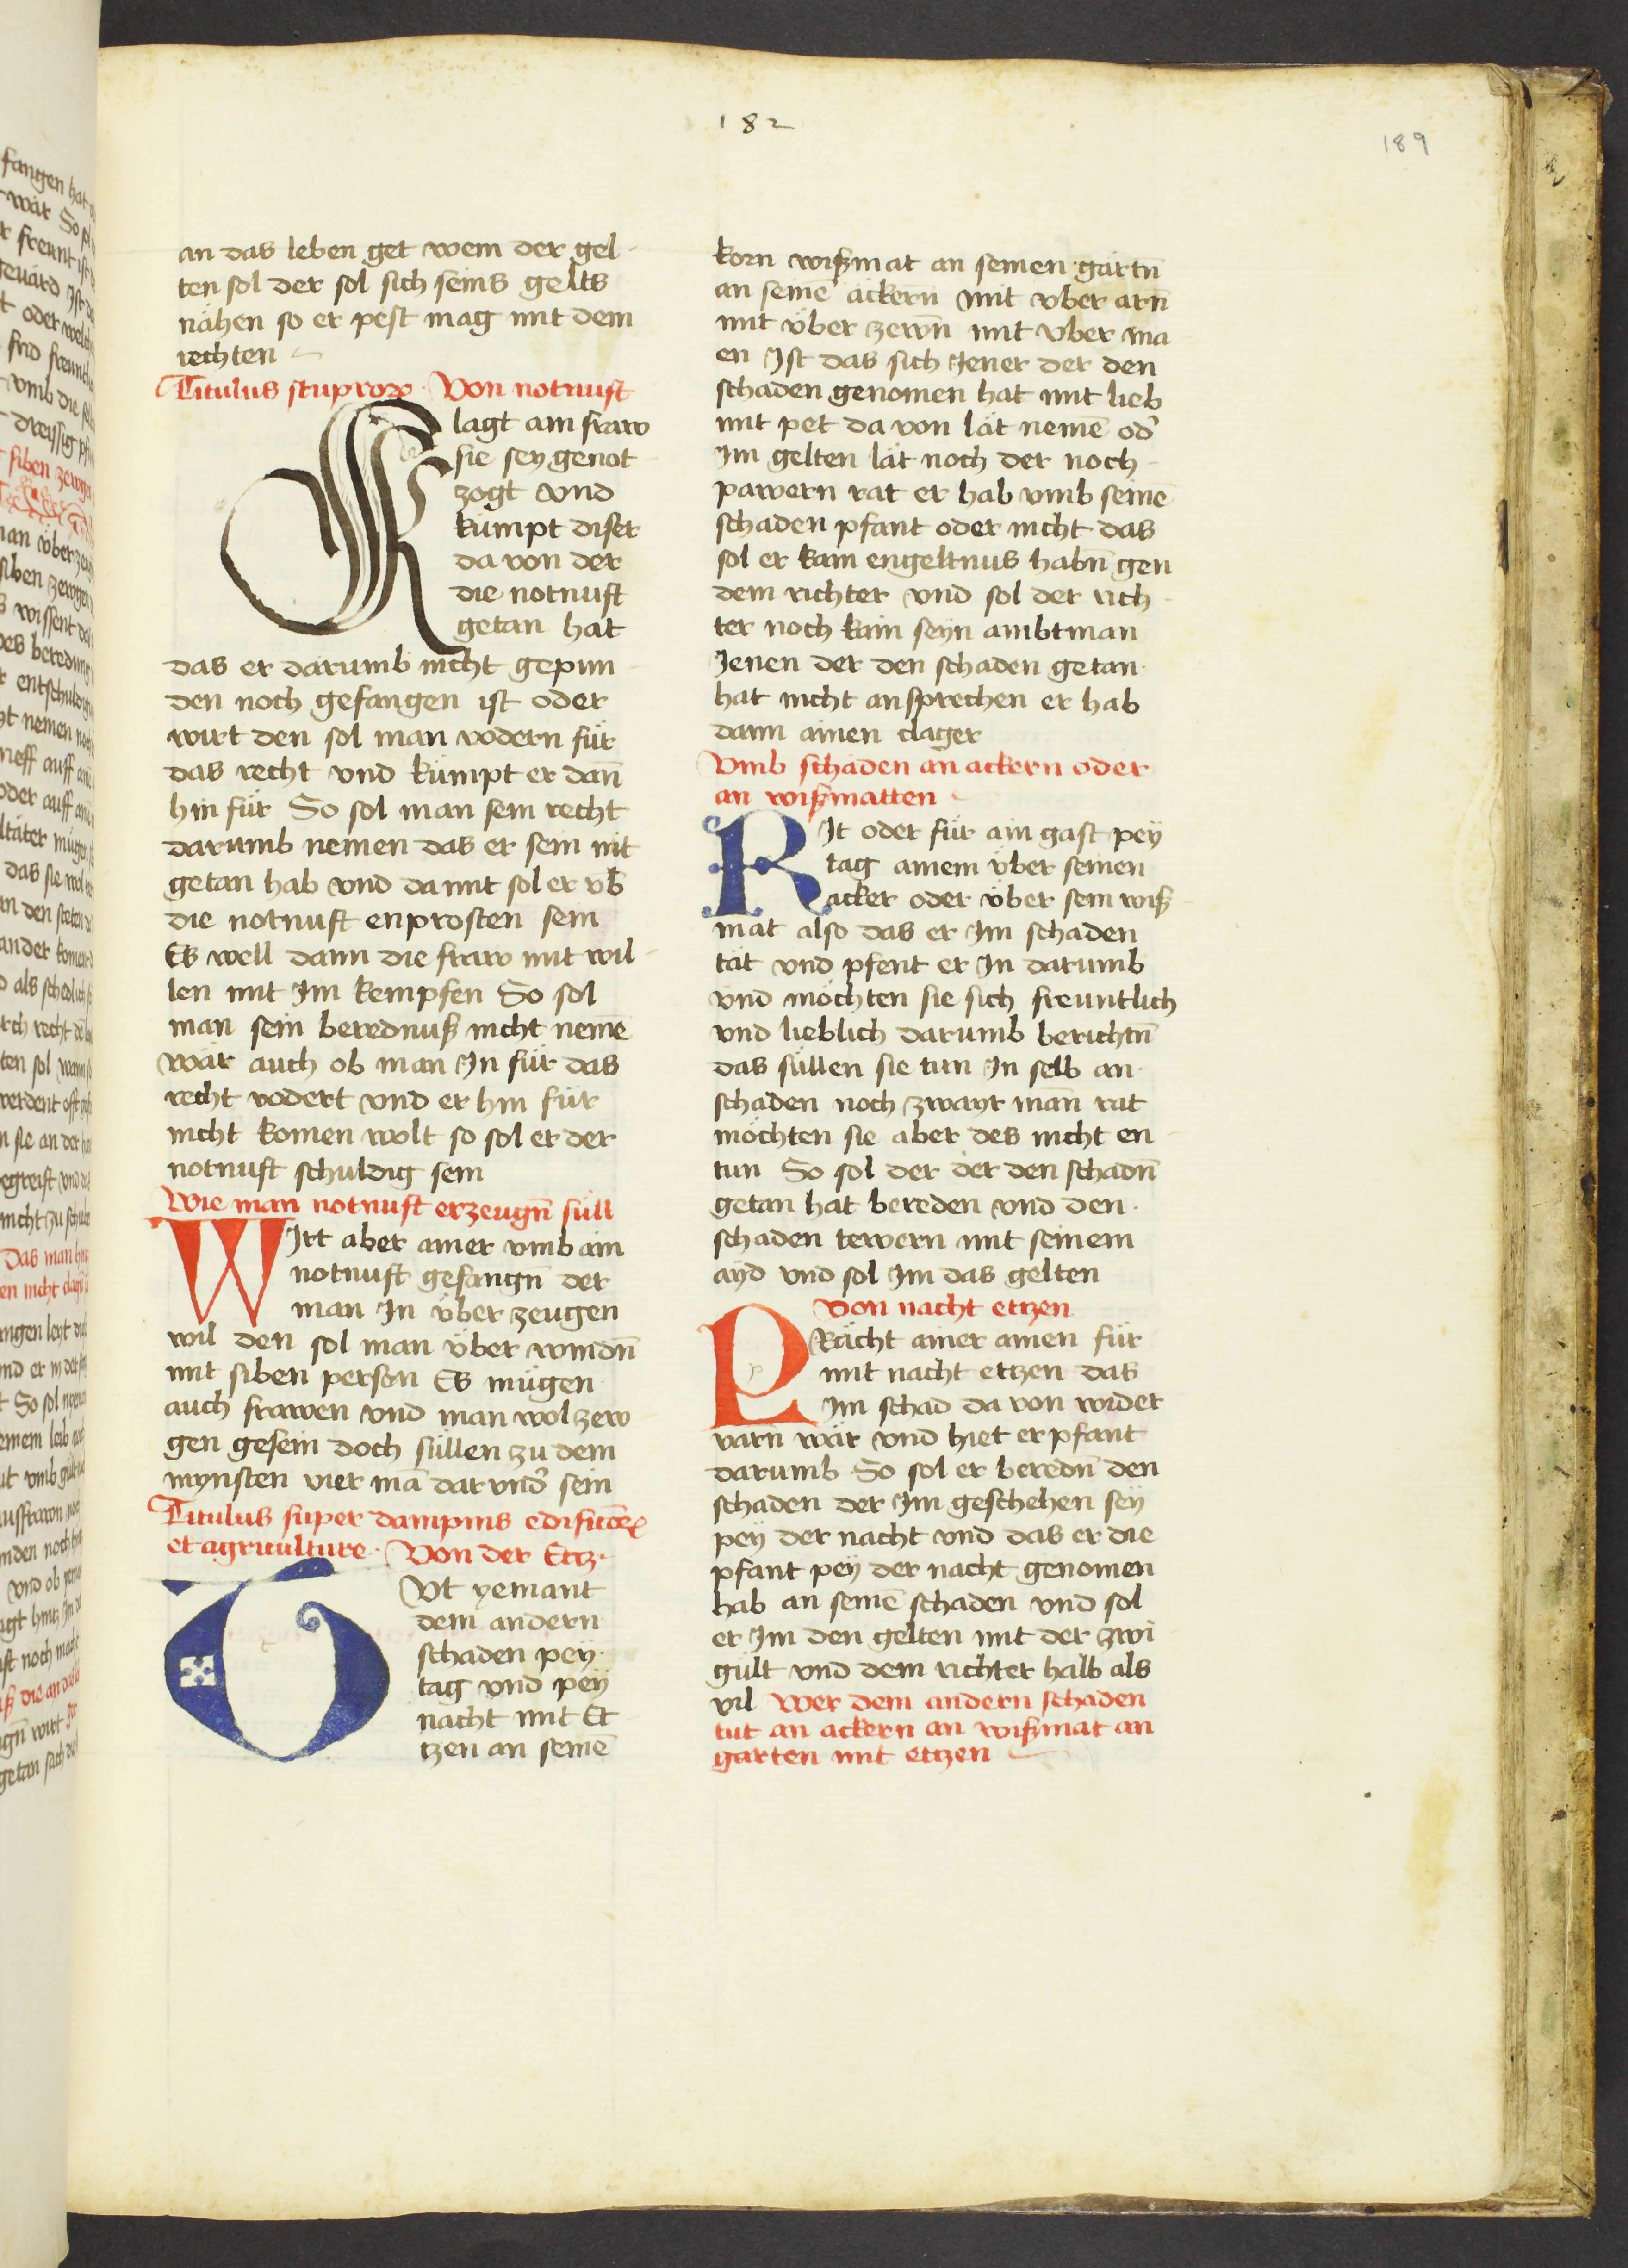 182
189
an das leben get wem der gel-
ten sol der sol sich seins gelts
nähen so er pest mag mit dem
rechten
Titulus stuproꝝ Von notnuft
Klagt ain fraw
sie sey genot
zogt vnd
kümpt diser
da von der
die notnuft
getan hat
das er darumb nicht gepun
den noch gefangen ist oder
wirt den sol man vodern für
das recht vnd kümpt er dañ
hin für So sol man sein recht
darumb nemen das er sein nit
getan hab vnd da mit sol er vb
die notnuft enprosten sein
Es well dann die fraw mit wil-
len mit Im kempfen So sol
man sein berednuß nicht nemē
wär auch ob man In für das
recht vodert vnd er hin für
nicht komen wolt so sol er der
notnuft schuldig sein
Wie man notnuft erzeugñ süll
WIrt aber ainer vmb ain
notnuft gefangñ der
man In über zeugen
wil den sol man über windñ
mit siben person Es mügen
auch frawen vnd man wol zew
gen gesein doch süllen zu dem
mynsten vier mā dar vnd̉ sein
Titulus super dampnis
et agriculture. Von der Etz.
TVt yemant
dem andern
schaden pey
tag vnd pey
nacht mit Et
tzen an seinē
korn wißmat an seinen gärtñ
an seinē äckern mit vber arñ
mit über zewñ mit vber ma
en Ist das sich Jener der den
schaden genomen hat mit lieb
mit pet da von lät nemē od̉
Im gelten lät noch der noch-
pawern rat er hab vmb seinē
schaden pfant oder nicht das
sol er kain engeltnus habñ gen
dem richter vnd sol der rich
ter noch kain seyn ambtman
Jenen der den schaden getan
hat nicht ansprechen er hab
dann ainen clager
Vmb schaden an äckern oder
an wißmatten
RIt oder für ain gast pey
tag ainem über seinen
acker oder über sein wiß
mat also das er Im schaden
tät vnd pfent er In darumb
vnd möchten sie sich freuntlich
vnd lieblich darumb berichtñ
das süllen sie tun In selb an
schaden noch zwayr mañ rat
möchten sie aber des nicht en
tun So sol der der den schadñ
getan hat bereden vnd den
schaden tewern mit seinem
ayd vnd sol Im das gelten
Von nacht etzen
PRächt ainer ainen für
mit nacht etzen das
Im schad da von wider
varñ wär vnd hiet er pfant
darumb So sol er beredñ den
schaden der Im geschehen sey
pey der nacht vnd das er die
pfant pey der nacht genomen
hab an seinē schaden vnd sol
er Im den gelten mit der zwi
gült vnd dem richter halb als
vil Wer dem andern schaden
tut an äckern an wißmat an
garten mit etzen